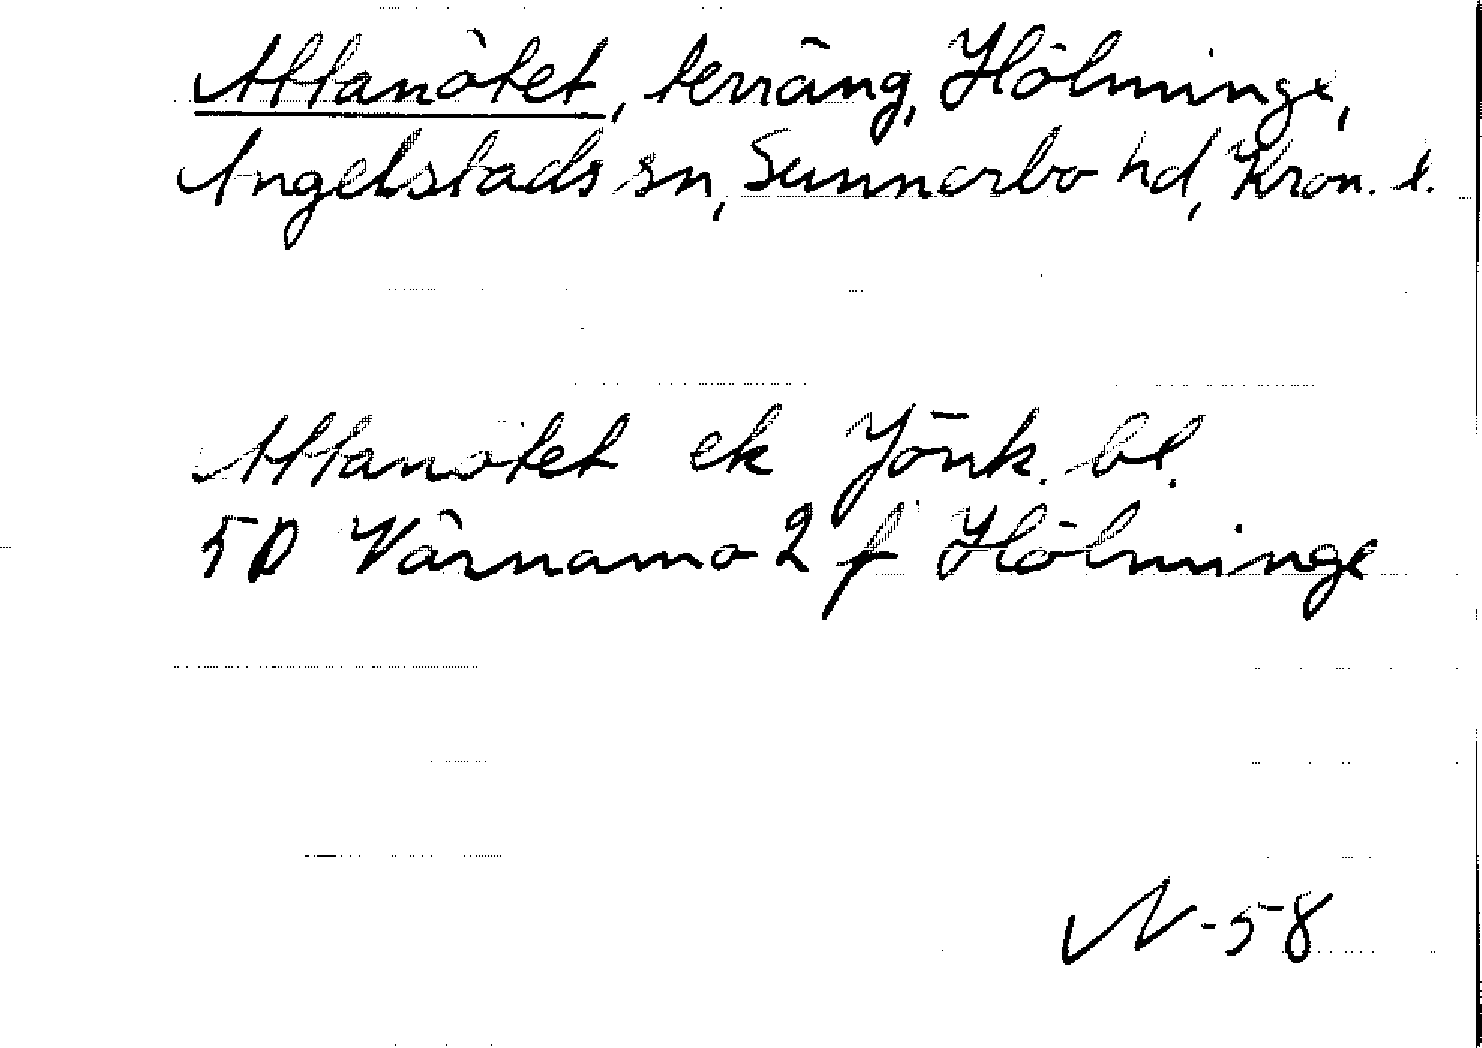 Altanötet, terräng, Hölminge,
Angelstads sn, Sunnerbo hd, Kron. l.
Altanötet ek Jönk. bl.
5D Värnamo 2 f Hölminge
N-58